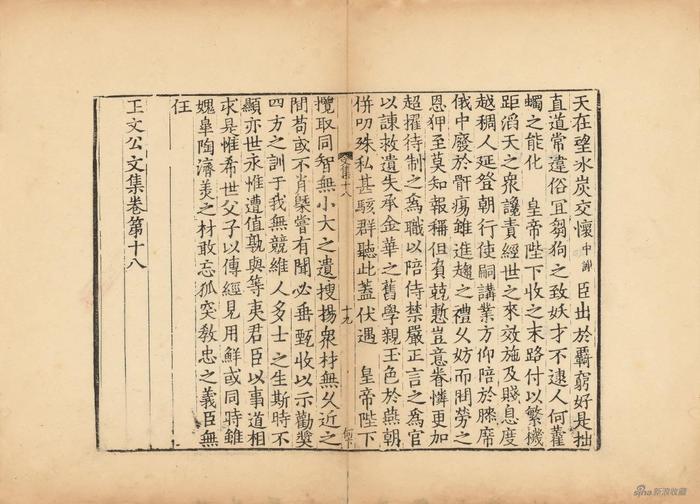 天在望氷炭交懷中謝臣出於羇窮好是拙
直道常違俗宜芻狗之致妖才不逮人何藿
蠋之能化 皇帝陛下收之末路付以繁機
距滔天之衆讒責經世之來效施及賤息度
越稠人延登朝行使嗣講業方仰陪於滕席
俄中廢於骭瘍雖進趨之禮久妨而閔勞之
恩狎至莫知報稱但負兢慙豈意眷憐更加
超擢待制之爲職以陪侍禁嚴正言之爲官
以諫救遺失承金華之舊學親玉色於燕朝
併叨殊私甚駭群聽此蓋伏遇 皇帝陛下
文集十八
十九
攬取同智無小大之遺搜揚衆材無久近之
間苟或不肖槩嘗有聞必垂甄收以示勸獎
四方之訓于我無競維人多士之生斯時不
顯亦世永惟遭值孰與等夷君臣以事道相
求是惟希世父子以傳經見用鮮或同時雖
媿皐陶濟美之材敢忘狐突敎忠之義臣無
任
王文公文集卷第十八
sina 新浪收藏